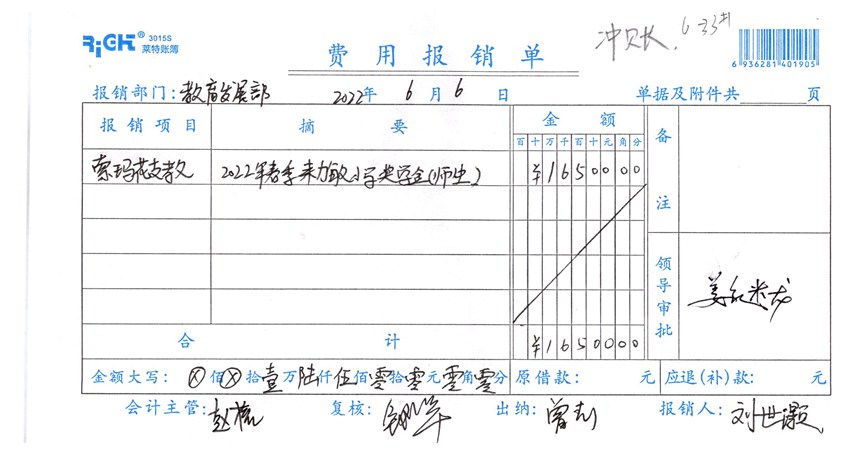 RiGHT® 3015S
莱特账簿
冲贝长. 6-33#
费用报销单
6 936281 401905
报销部门: 教育发展部 2022年 6 月 6 日 单据及附件共 页
报销项目 摘要 金额 备注
百十万千百十元角分
索玛花支教 2022年春季来力敏小学奖学金(师生) ¥1650000
领导审批
合计 ¥1650000
金额大写: ⊗佰⊗拾壹万陆仟伍佰零拾零元零角零分 原借款: 元 应退(补)款: 元
会计主管: 复核: 出纳: 曾志 报销人: 刘世灏